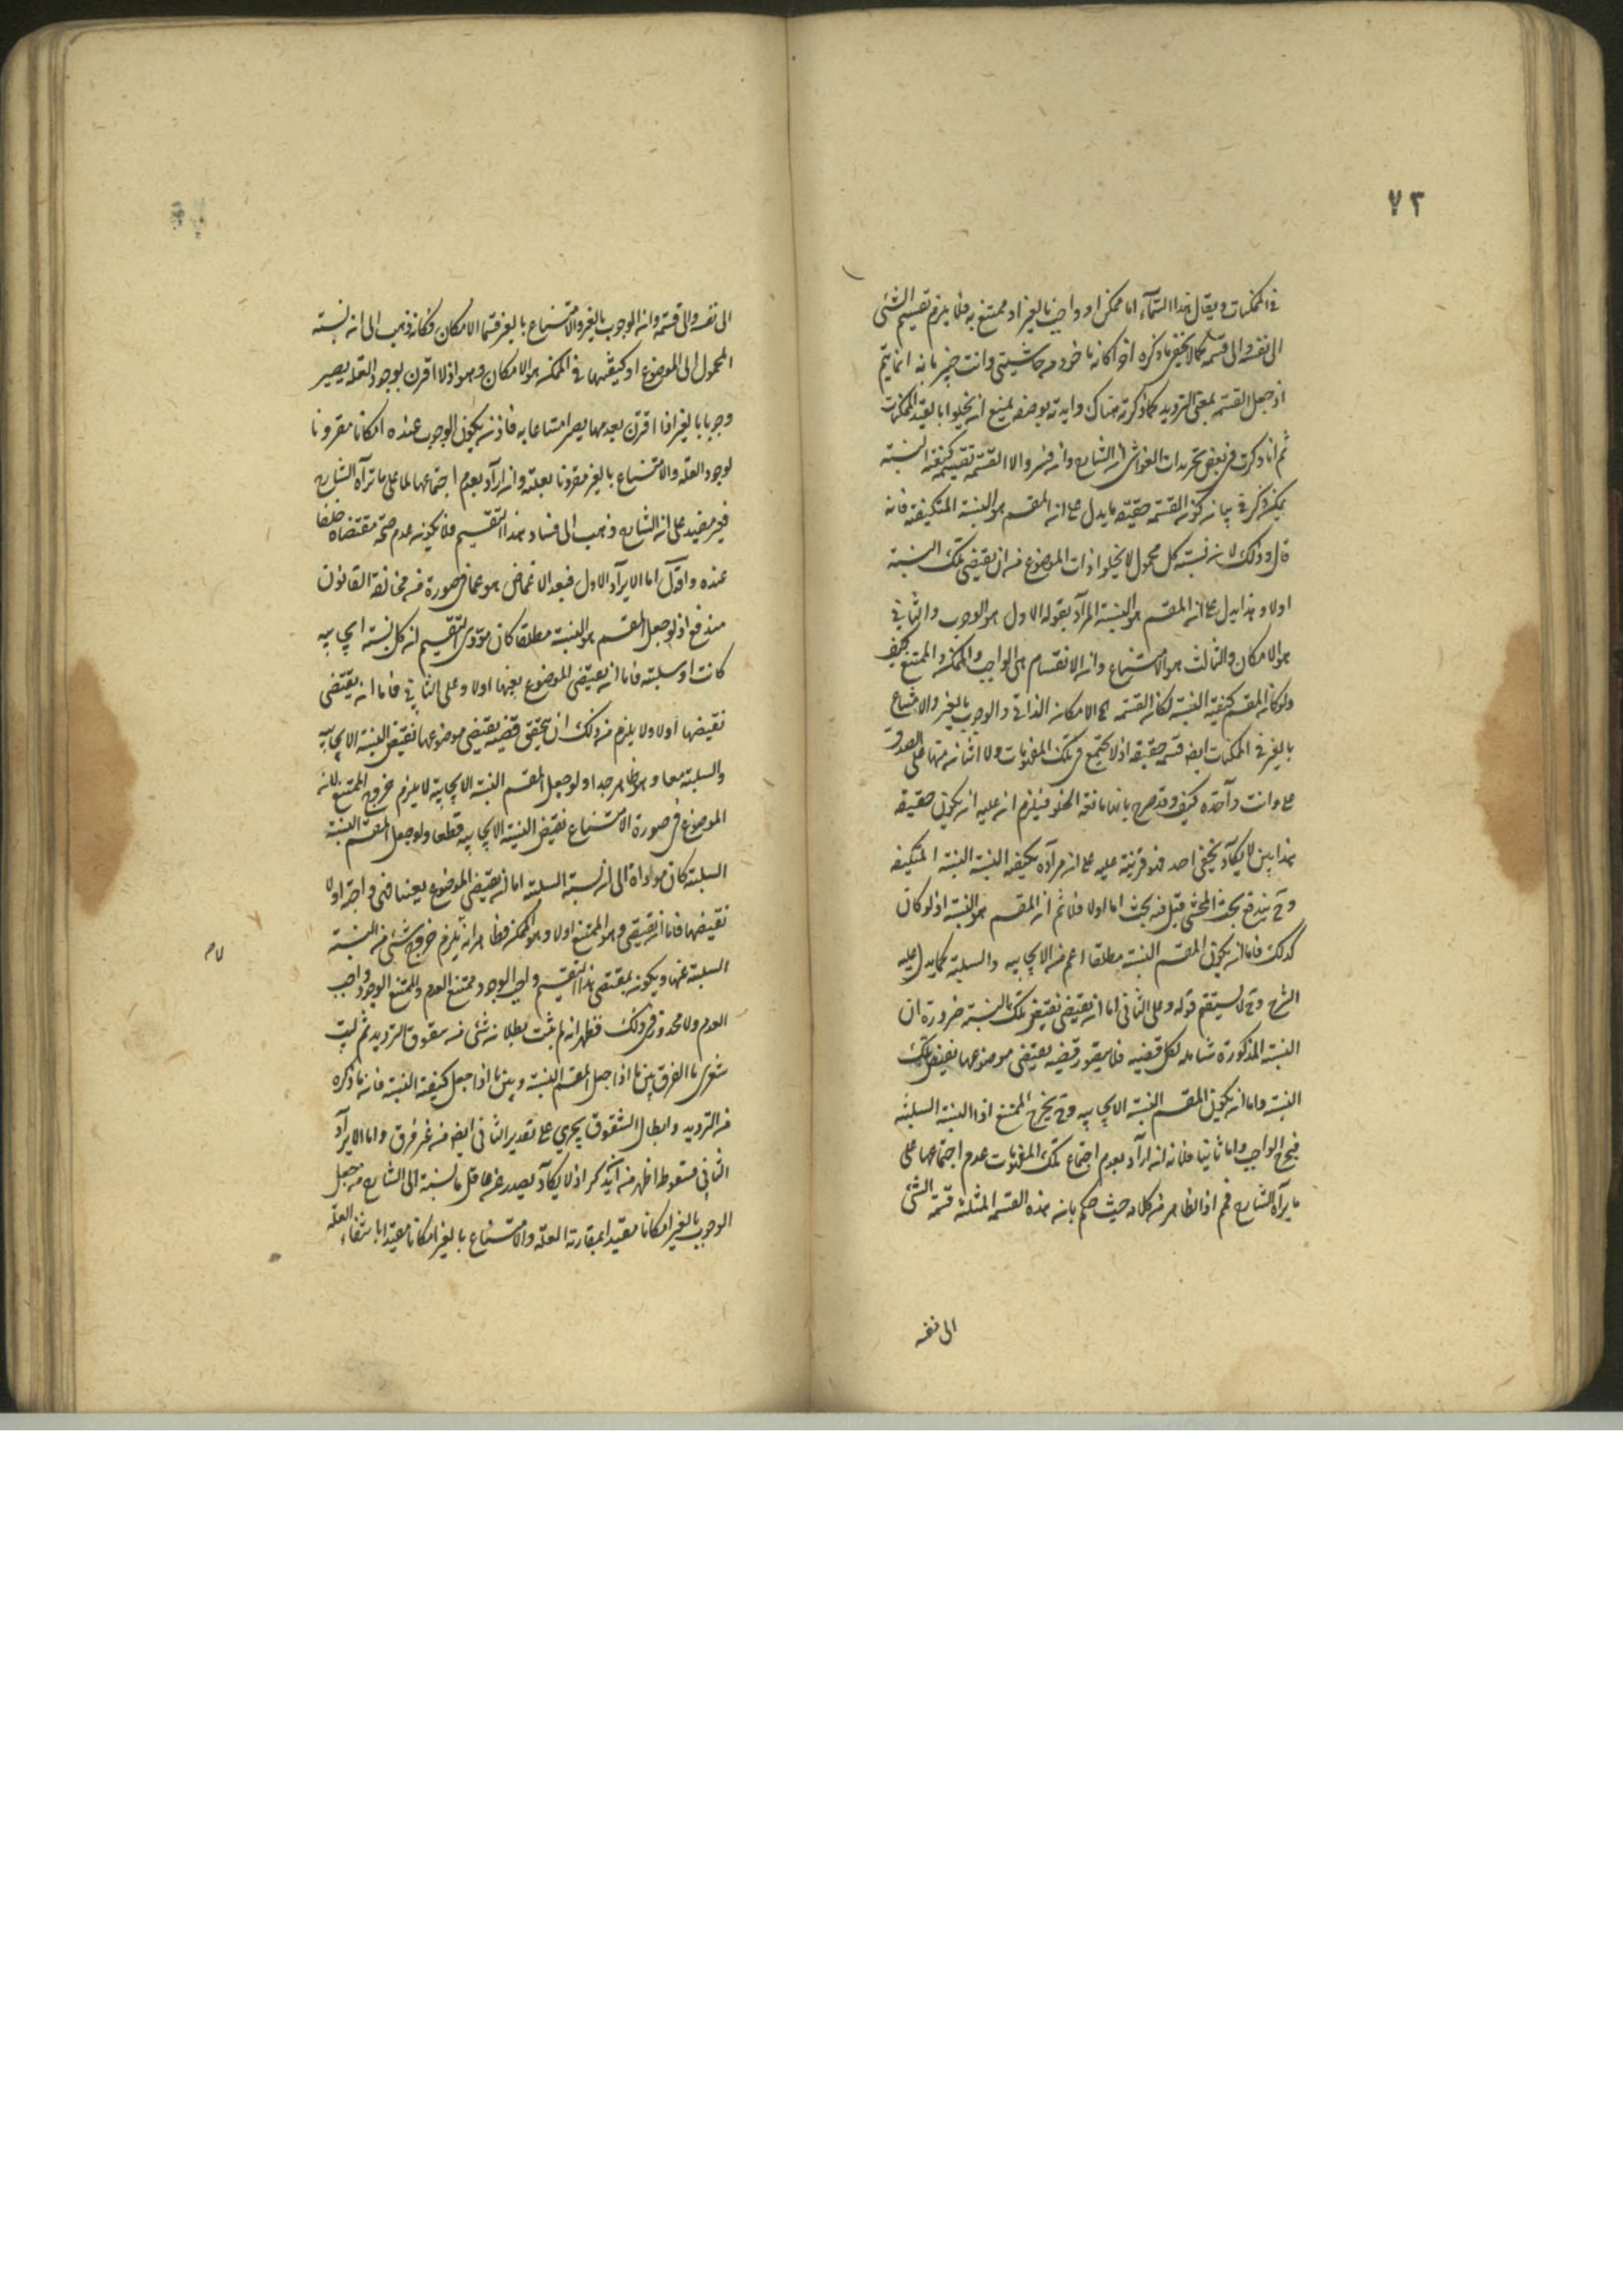 ٧٣
في الممكنات ويقال هذا السماء اما ممكن او واجب بالغير او ممتنع به فلا يلزم تقسيم الشئ
الى نفسه والى قسمه كما لا يخفى ما ذكره اخرا كانه ماخوذ من حاشيتي وانت خبير بانه انما يتم
اذ جعل القسمة بمعنى الترديد كما ذكرته هناك وايدته بوصفه بمنع الخلو اما بقيد الممكنات
ثم انا ذكرت في بعض تحريرات الغواشي ان الشارح وان فسر والا القسمة بتقسيم كيفية النسبة
يمكن ذكر في بيان كون القسمة حقيقة ما يدل على ان المقسم هو النسبة المتكيفة فانه
قال وذلك لان نسبة كل محمول لا يخلوا ذات الموضوع من ان يقتضي تلك النسبة
اولا وهذا يدل على ان المقسم هو النسبة المراد بقوله الاول هو الوجوب والثاني
هو الامكان والثالث هو الامتناع وان الانقسام الى الواجب والممكن والممتنع كيف
ولو كان المقسم كيفية النسبة لكان القسمة الى الامكان الذاتي والوجوب بالغير والامتناع
بالغير في الممكنات ايضا قسمة حقيقة اذ لا تجتمع تلك المفهومات ولا اثنان منها على الصدق
على ذات واحدة كيف وقد صرح بانها مانعة الخلو فيلزم ان عليه ان يكون حقيقة
هذا بين لا يكاد يخفى احد فهو قرينة عليه على ان مراده بكيفية النسبة النسبة المتكيفة
وح يندفع بحث المحشي قيل فيه بحث اما اولا فلا ثم ان المقسم هو النسبة اذ لو كان
كذلك فاما ان يكون المقسم النسبة مطلقا اعم من الايجابية والسلبية كما يدل عليه
الشرح وح لا يستقيم قوله وعلى الثاني اما ان يقتضي نقيض تلك النسبة ضرورة ان
النسبة المذكورة شاملة لكل قضية فلا يتصور قضية يقتضي موضوعها نقيض تلك
النسبة واما ان يكون المقسم النسبة الايجابية وح يخرج الممتنع اذا النسبة السلبية
فيخرج الواجب واما ثانيا فلانه ان اراد بعدم اجتماع تلك المفهومات عدم اجتماعها على
ما يراه الشارح فم اذ الظاهر من كلامه حيث حكم بان هذه القسمة المثلثة قسمة الشئ
الى نفسه
الى نفسه والى قسمه وان الوجوب بالغير والامتناع بالغير قسما الامكان فكانه ذهب الى ان نسبة
المحمول الى الموضوع او كيفيتها في الممكن هو الامكان وهو اذا اقرن بوجود العلة يصير
وجوبا بالغير اذا اقرن بعدمها يصير امتناعا به فاذن يكون الوجوب عنده امكانا مقرونا
بوجود العلة والامتناع بالغير مقرونا بعلته وان اراد بعدم اجتماعهما لما على ما تراه الشارح
فغير مفيد على ان الشارح ذهب الى فساد هذا التقسيم فلا يكون عدم صحة مقتضاه خلفا
عنده واقول اما الايراد الاول فبعد الاغماض هو عما في صورة منه مخالفة القانون
مندفع اذ لو جعل المقسم هو النسبة مطلقا كان مؤدى التقسيم ان كل نسبة ايجابية
كانت او سلبية فاما ان يقتضي الموضوع بعينها اولا وعلى الثاني فاما ان يقتضي
نقيضها اولا ولا يلزم من ذلك ان يتحقق قضية يقتضي موضوعها نقيض النسبة الايجابية
والسلبية معا وهو ظاهر جدا ولو جعل المقسم النسبة الايجابية لا يلزم خروج الممتنع لان
الموضوع في صورة الامتناع نقيض النسبة الايجابية قطعا ولو جعل المقسم النسبة
السلبية كان مواداه الى ان نسبة السلبية اما ان يقتضي الموضوع بعينها فهي واجبة اولا
نقيضها فاما ان يقتضي وهو الممتنع اولا وهو الممكن فظاهر انه لا يلزم خروج شئ من النسبة
لا م
السلبية عنها ويكون بمقتضى هذا التقسيم واجب الوجود ممتنع العدم والممتنع الوجود واجب
العدم ولا محذور في ذلك فظهر انه لم يثبت بطلانه شئ من شقوق الترديد ثم ليت
شعري ما الفرق بين ما اذا جعل المقسم النسبة وبين ما اذا جعل كيفية النسبة فانه ما ذكره
من الترديد وابطال الشقوق يجري على تقدير الثاني ايضا من غير فرق واما الايراد
الثاني فسقوطه اظهر من ان يذكر اذ لا يكاد يصدر عن عاقل ما نسبة الى الشارح من جعل
الوجوب بالغير امكانا مقيدا بمقارنة العلة والامتناع بالغير امكانا مقيدا بانتفاء العلة